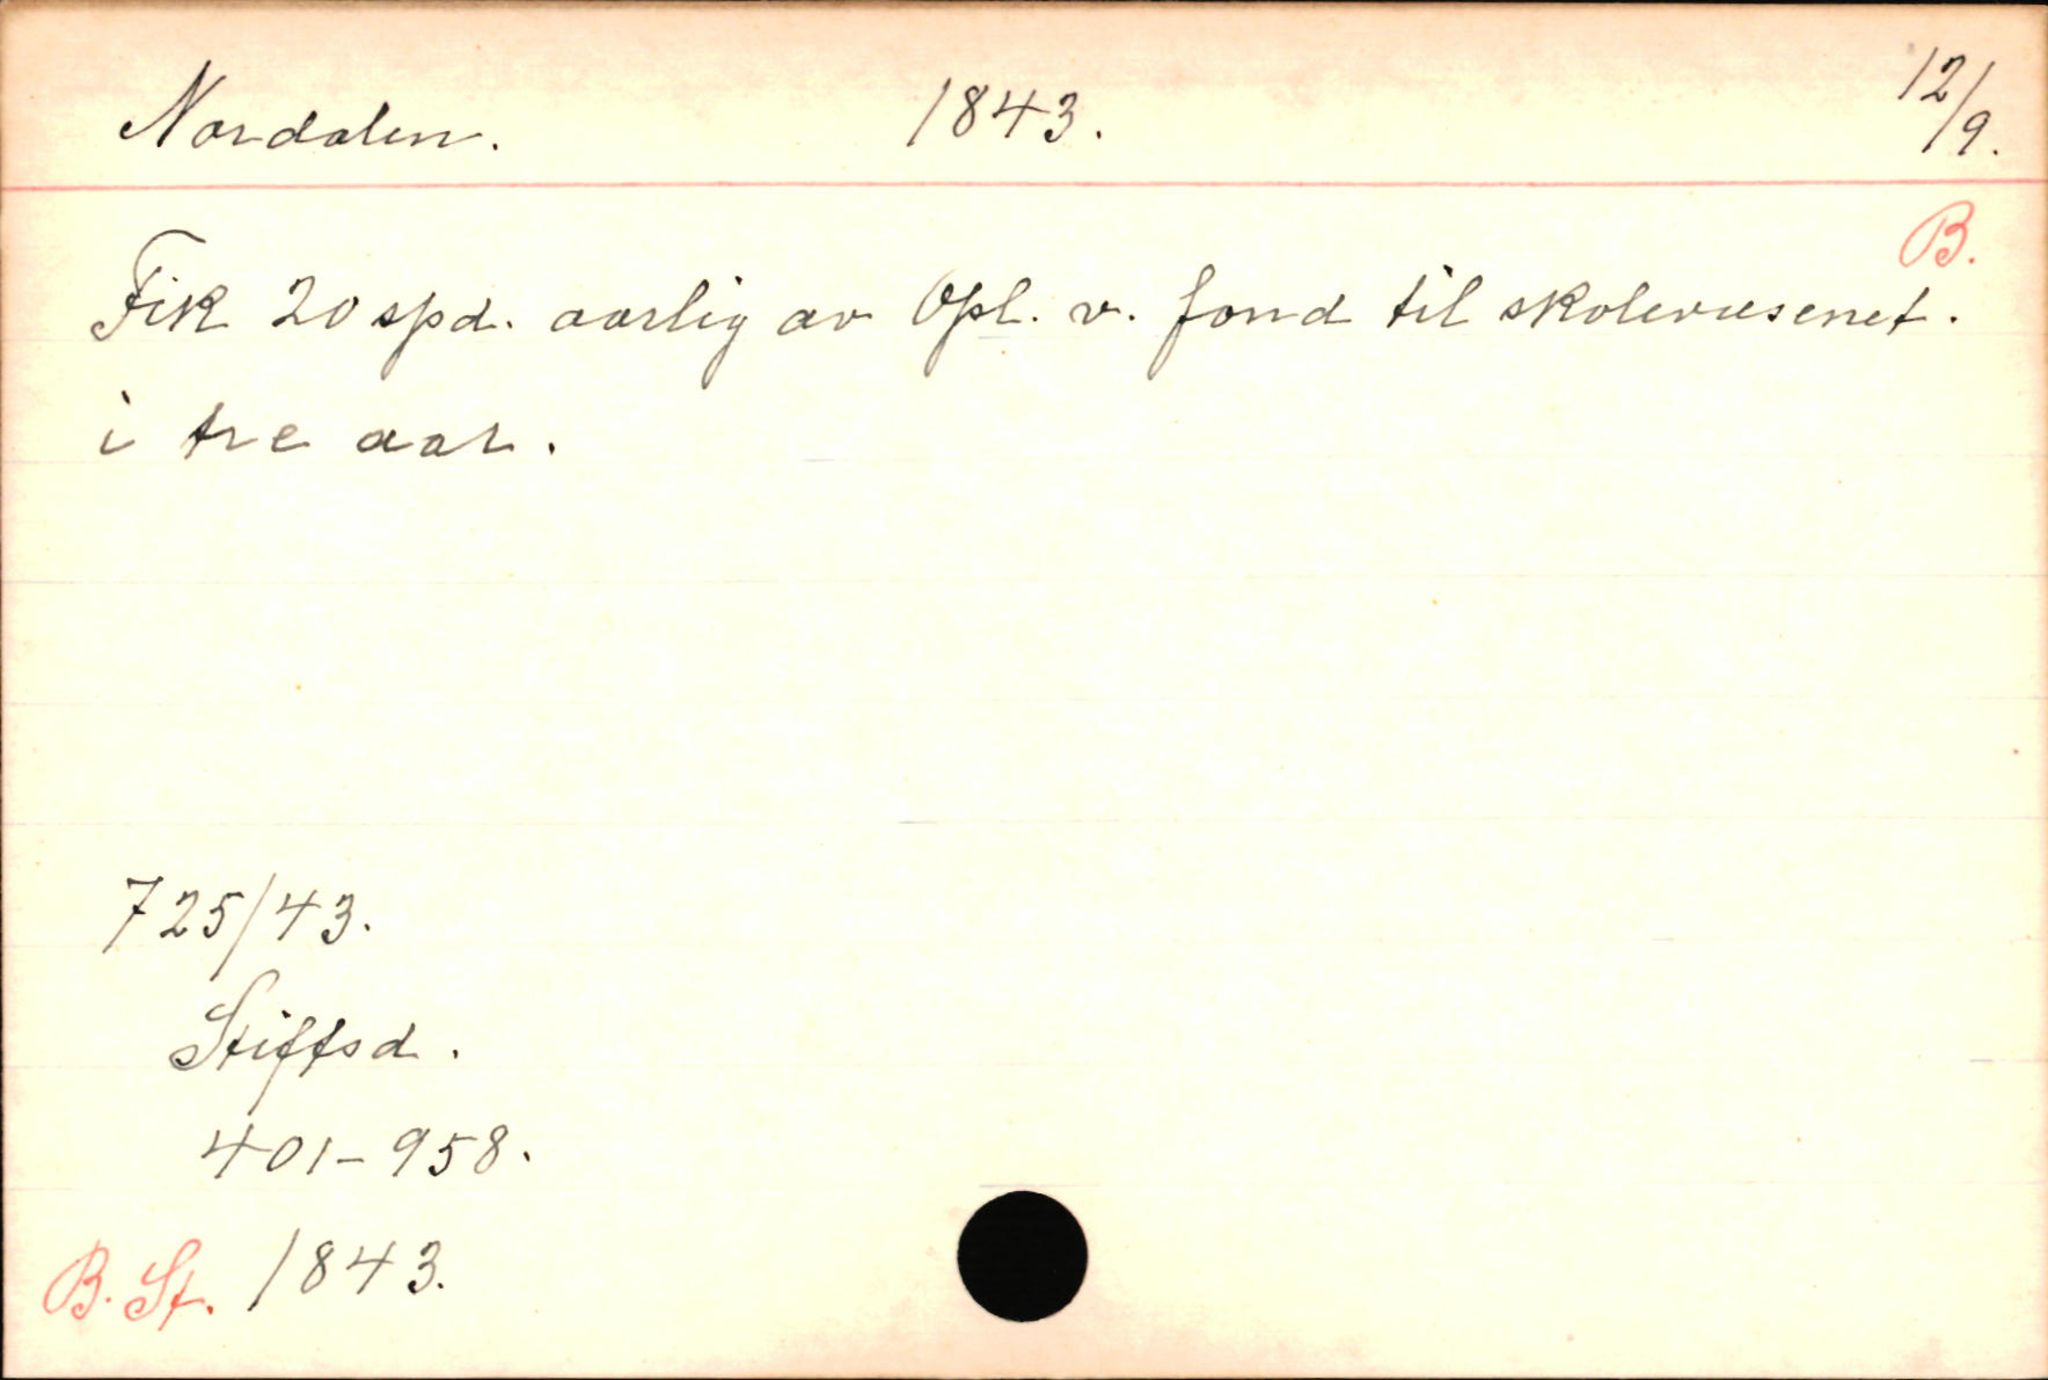 Nordalen. 1843. 12/9.
B.
Fik 20 spd. aarlig av Opl. v. fond til skolevæsenet.
i tre aar.
725/43.
Stiftsd.
401-958.
B. St. 1843.